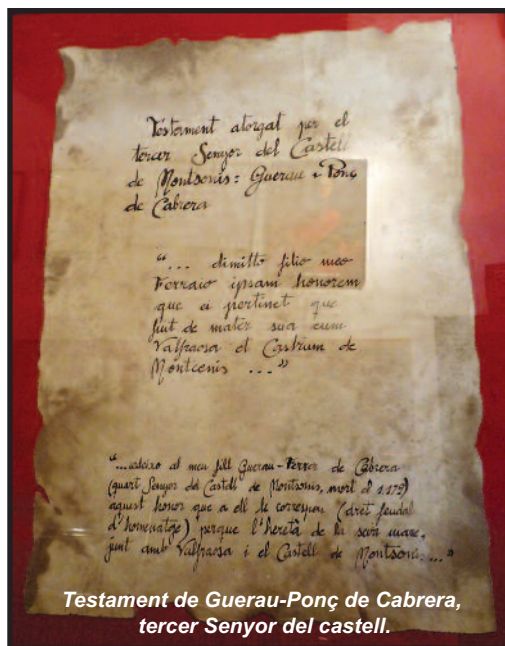 Testament atorgat per el
tercer Senyor del Castell
de Montsonís: Guerau i Ponç
de Cabrera
“... dimitto filio meo
Ferraio ipsam honorem
que ei pertinet que
fuit de mater sua cum
Valfraosa et Castrum de
Montcenis ...”
“...ueixo al meu fill Guerau-Ferrer de Cabrera
(quart Senyor del Castell de Montsonís, mort el 1175)
aquest honor que a ell le correspon (dret feudal
d'homenatge) perque l'heretà de la seva mare,
junt amb Valfraosa i el Castell de Montsonís...”
Testament de Guerau-Ponç de Cabrera,
tercer Senyor del castell.